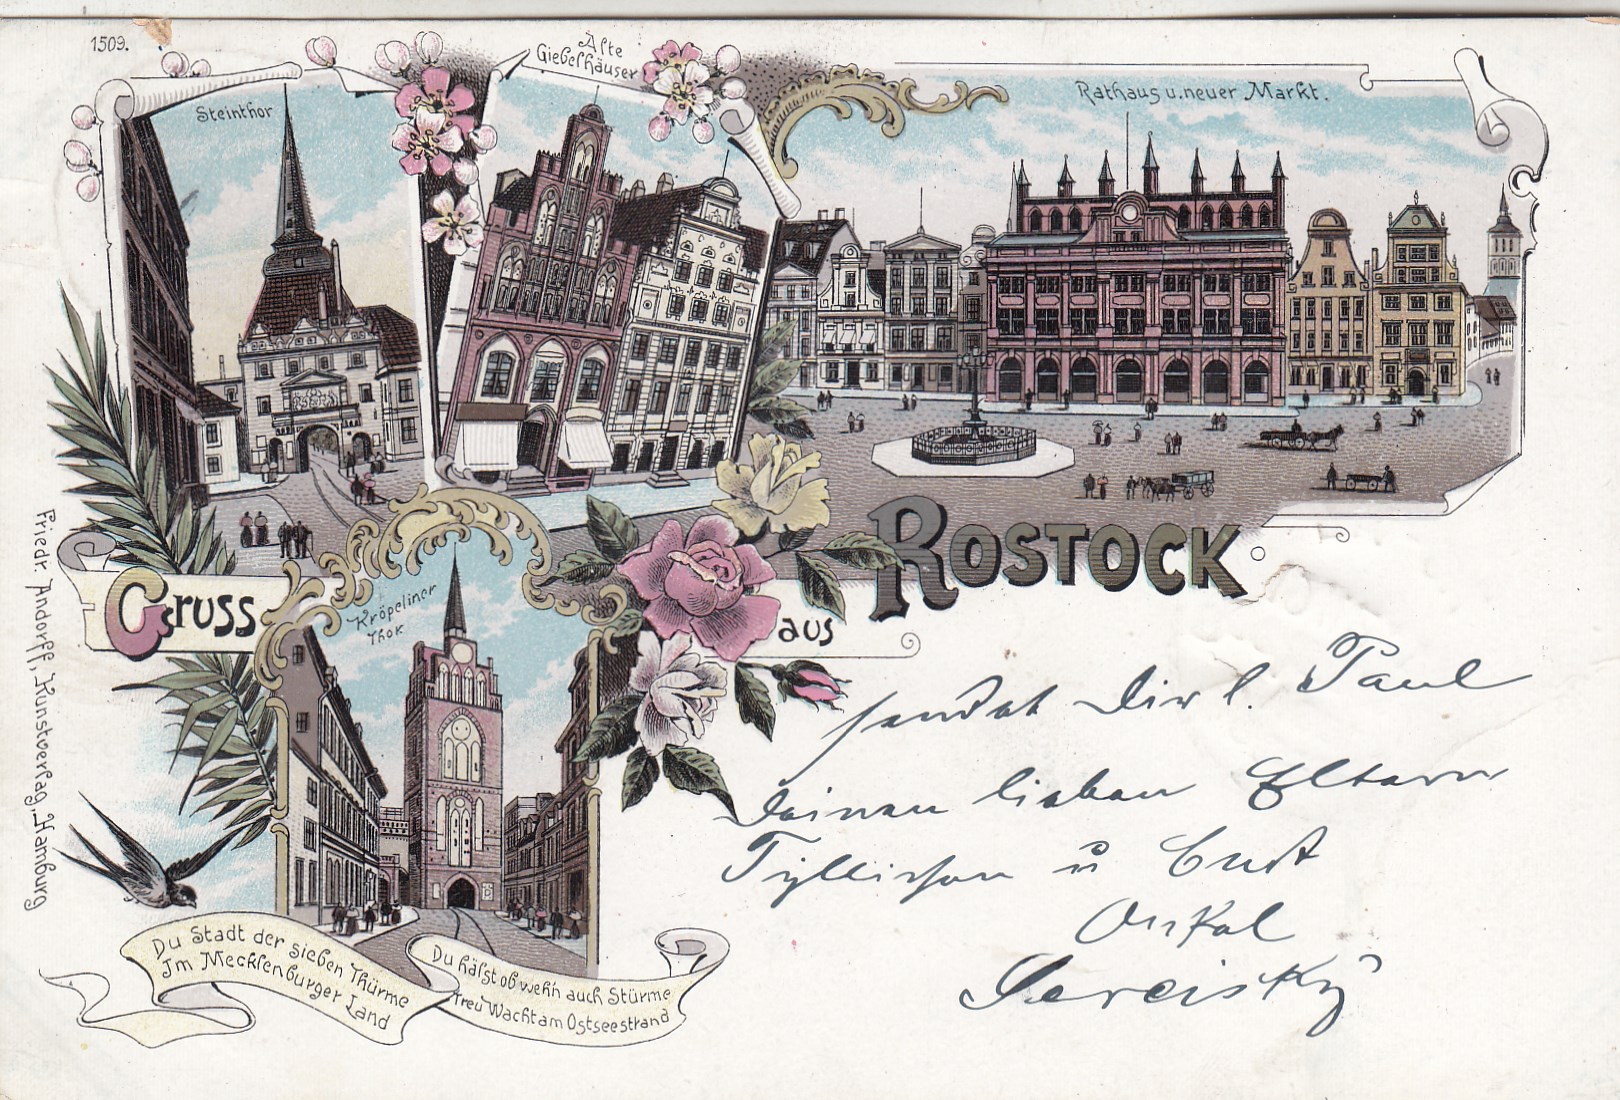 1509.
Steinthor
Alte
Giebelhäuser
Rathaus u. neuer Markt.
Gruss
aus
ROSTOCK
Kröpeliner
Thor
sendet Dir l. Paul
Deinen lieben Eltern
u
Onkel
Friedr. Andorff, Kunstverlag, Hamburg
Du Stadt der sieben Thürme
Im Mecklenburger Land
Du hälst ob weh'n auch Stürme
Treu Wacht am Ostseestrand